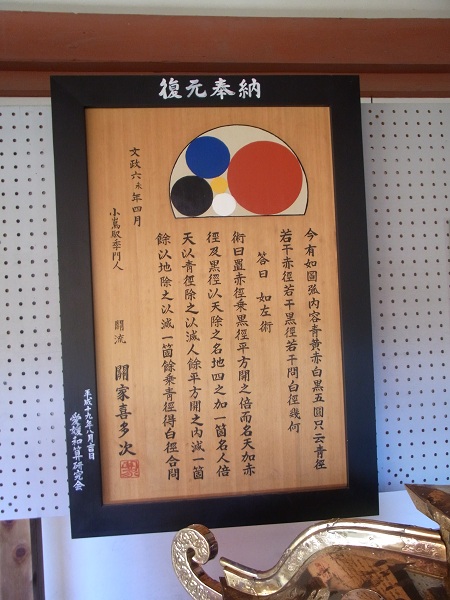 復元奉納
今有如圖弧内容青黄赤白黒五圓只云青徑
若干赤徑若干黒徑若干問白徑幾何
答曰 如左術
術曰置赤徑乗黒徑平方開之倍而名天加赤
徑及黒徑以天除之名地四之加一箇名人倍
天以青徑除之以減人餘平方開之内減一箇
餘以地除之以減一箇餘乗青徑得白徑合問
文政六未年四月
小嶌馭季門人
關流 關家喜多次
平成十九年八月吉日
愛媛和算研究会